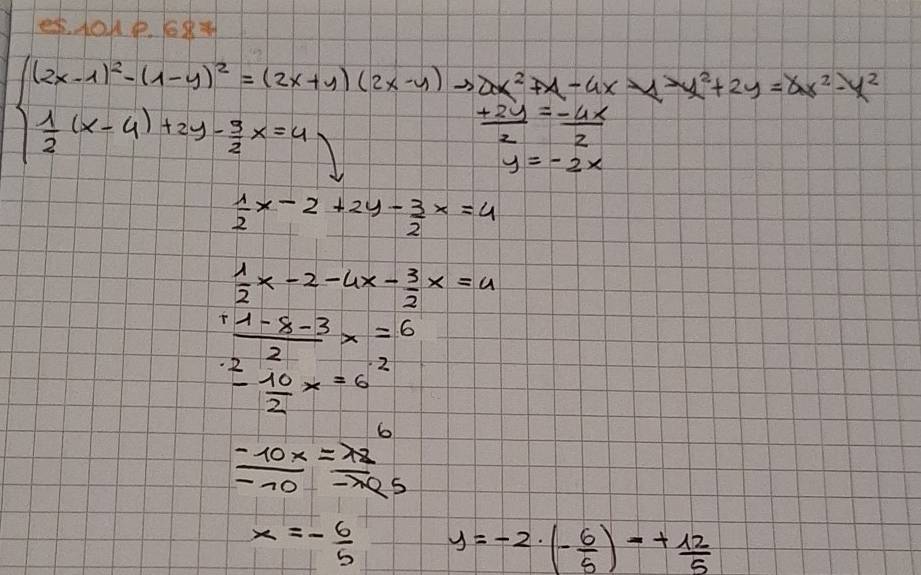 es. 101 p. 687
(2x-1)² - (1-y)² = (2x+y)(2x-y) → 4x² + 1 - 4x - 1 - y² + 2y = 4x² - y²
+2y/2 = -4x/2
y = -2x
1/2 (x-4) + 2y - 3/2 x = 4
1/2 x - 2 + 2y - 3/2 x = 4
1/2 x - 2 - 4x - 3/2 x = 4
+1-8-3/2 x = 6
·2 - 10/2 x = 6 ·2
-10x/-10 = 12/-10 6 5
x = - 6/5 y = -2 · (-6/5) = + 12/5